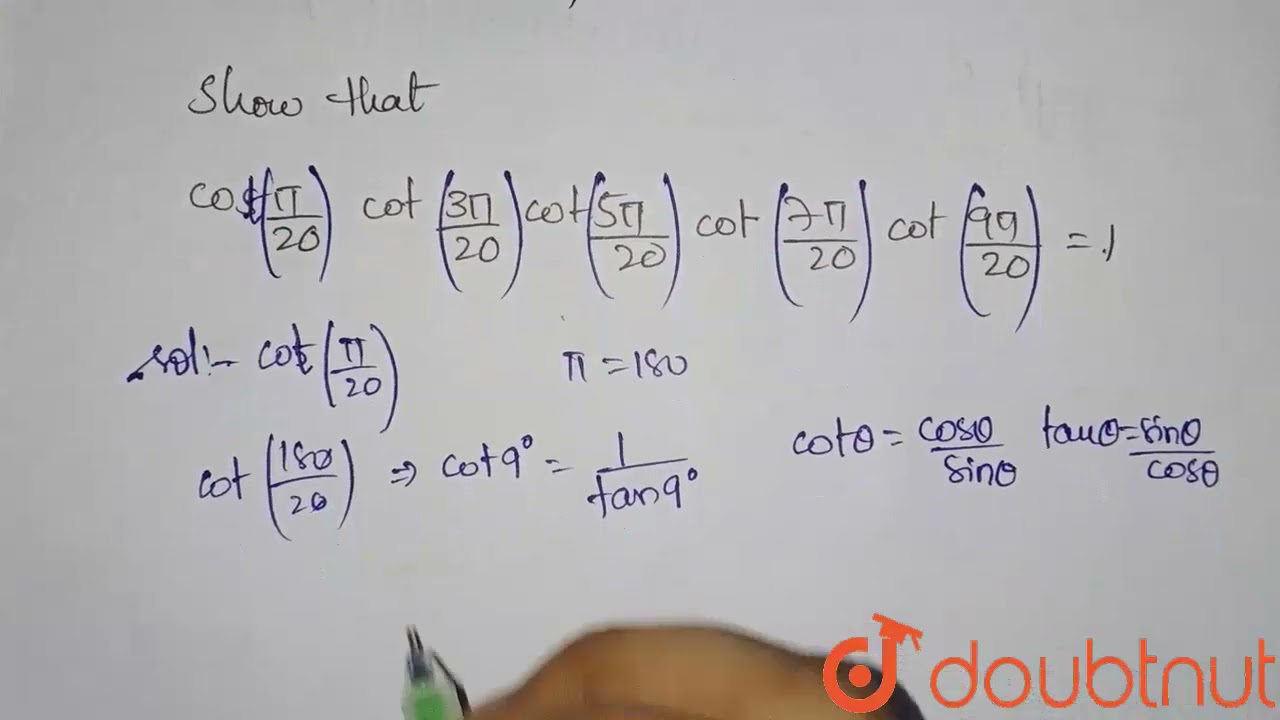 Show that
cot(π/20) cot(3π/20) cot(5π/20) cot(7π/20) cot(9π/20) = 1
Sol:- cot(π/20) π = 180
cot(180/20) ⇒ cot 9° = 1/tan 9° cotθ = cosθ/sinθ tanθ = sinθ/cosθ
doubtnut